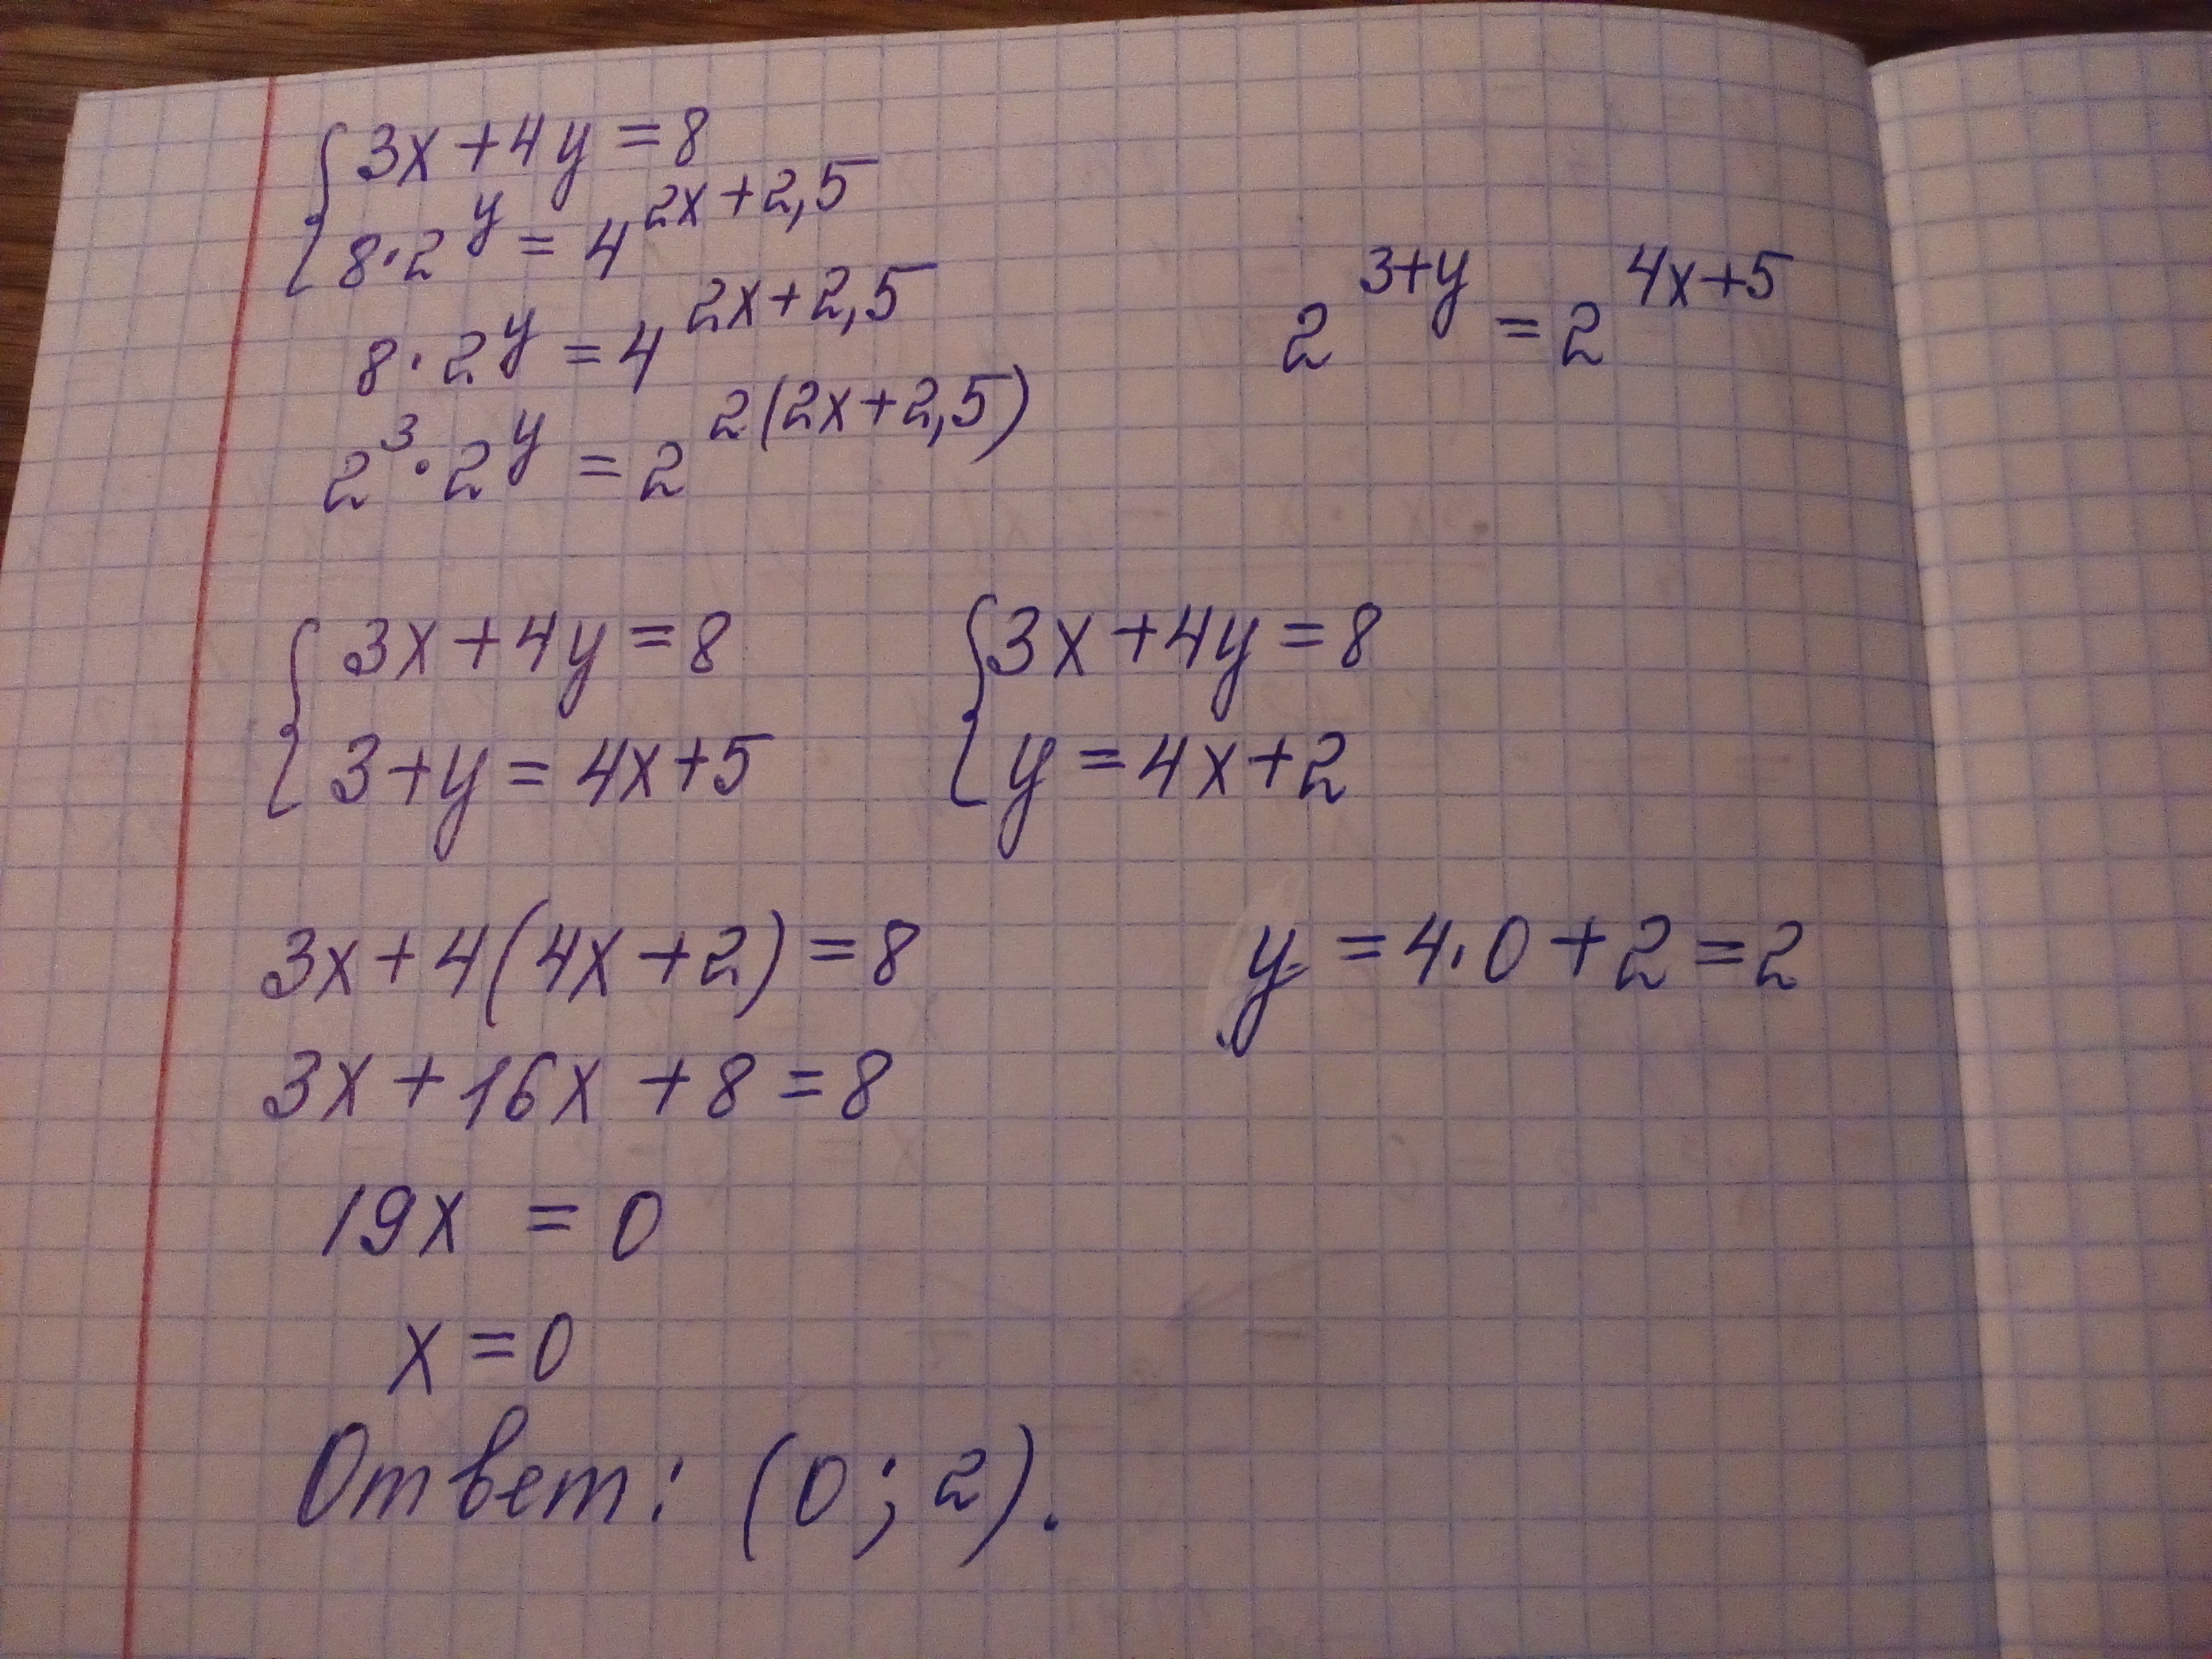 3x+4y=8
8·2^y=4^{2x+2,5}
8·2^y=4^{2x+2,5}
2^3·2^y=2^{2(2x+2,5)}
2^{3+y}=2^{4x+5}
3x+4y=8
3+y=4x+5
3x+4y=8
y=4x+2
3x+4(4x+2)=8
3x+16x+8=8
19x=0
x=0
y=4·0+2=2
Ответ: (0;2).